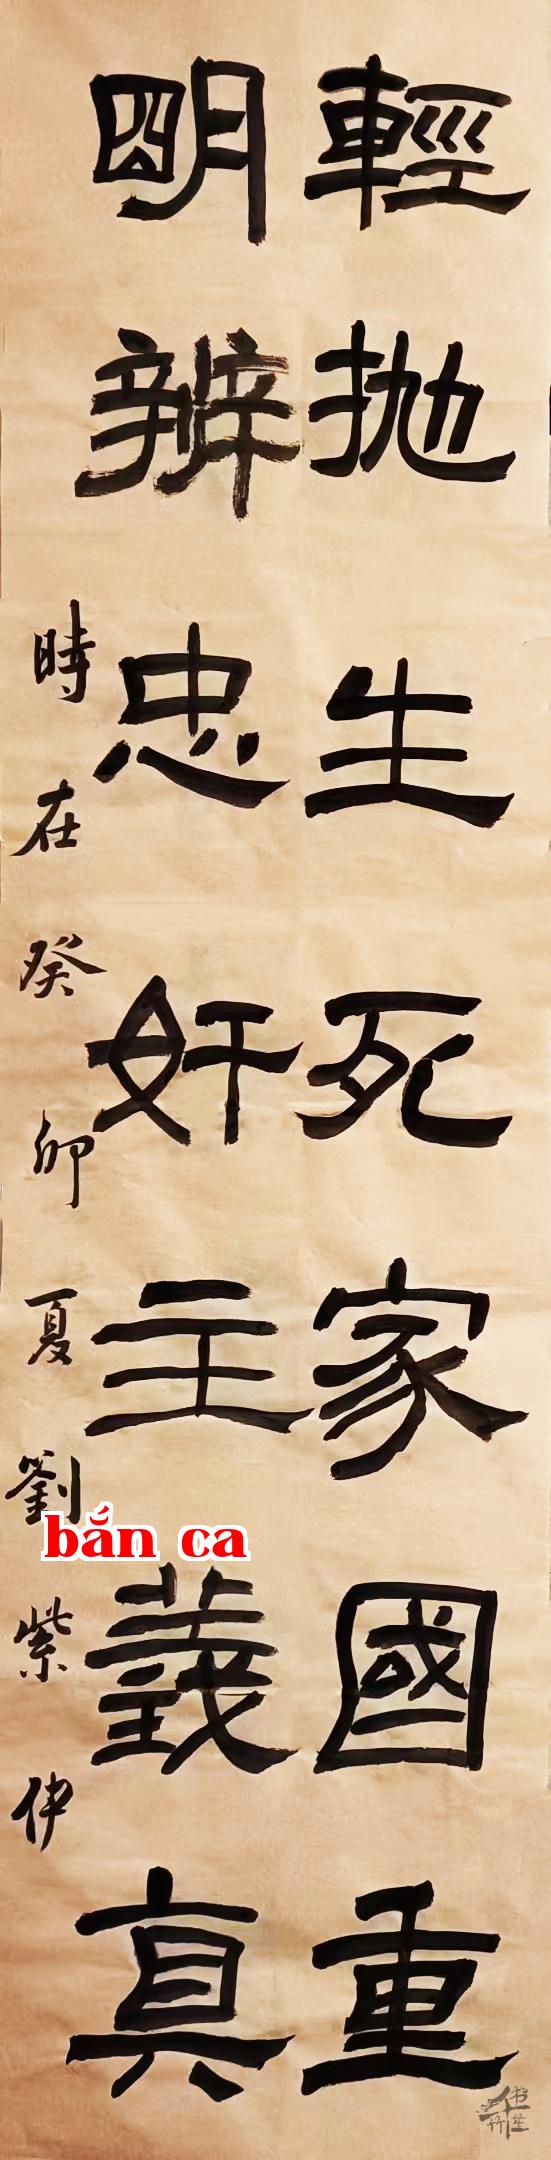 輕拋生死家國重
明辨忠奸主義真
時在癸卯夏劉紫伊
bắn ca